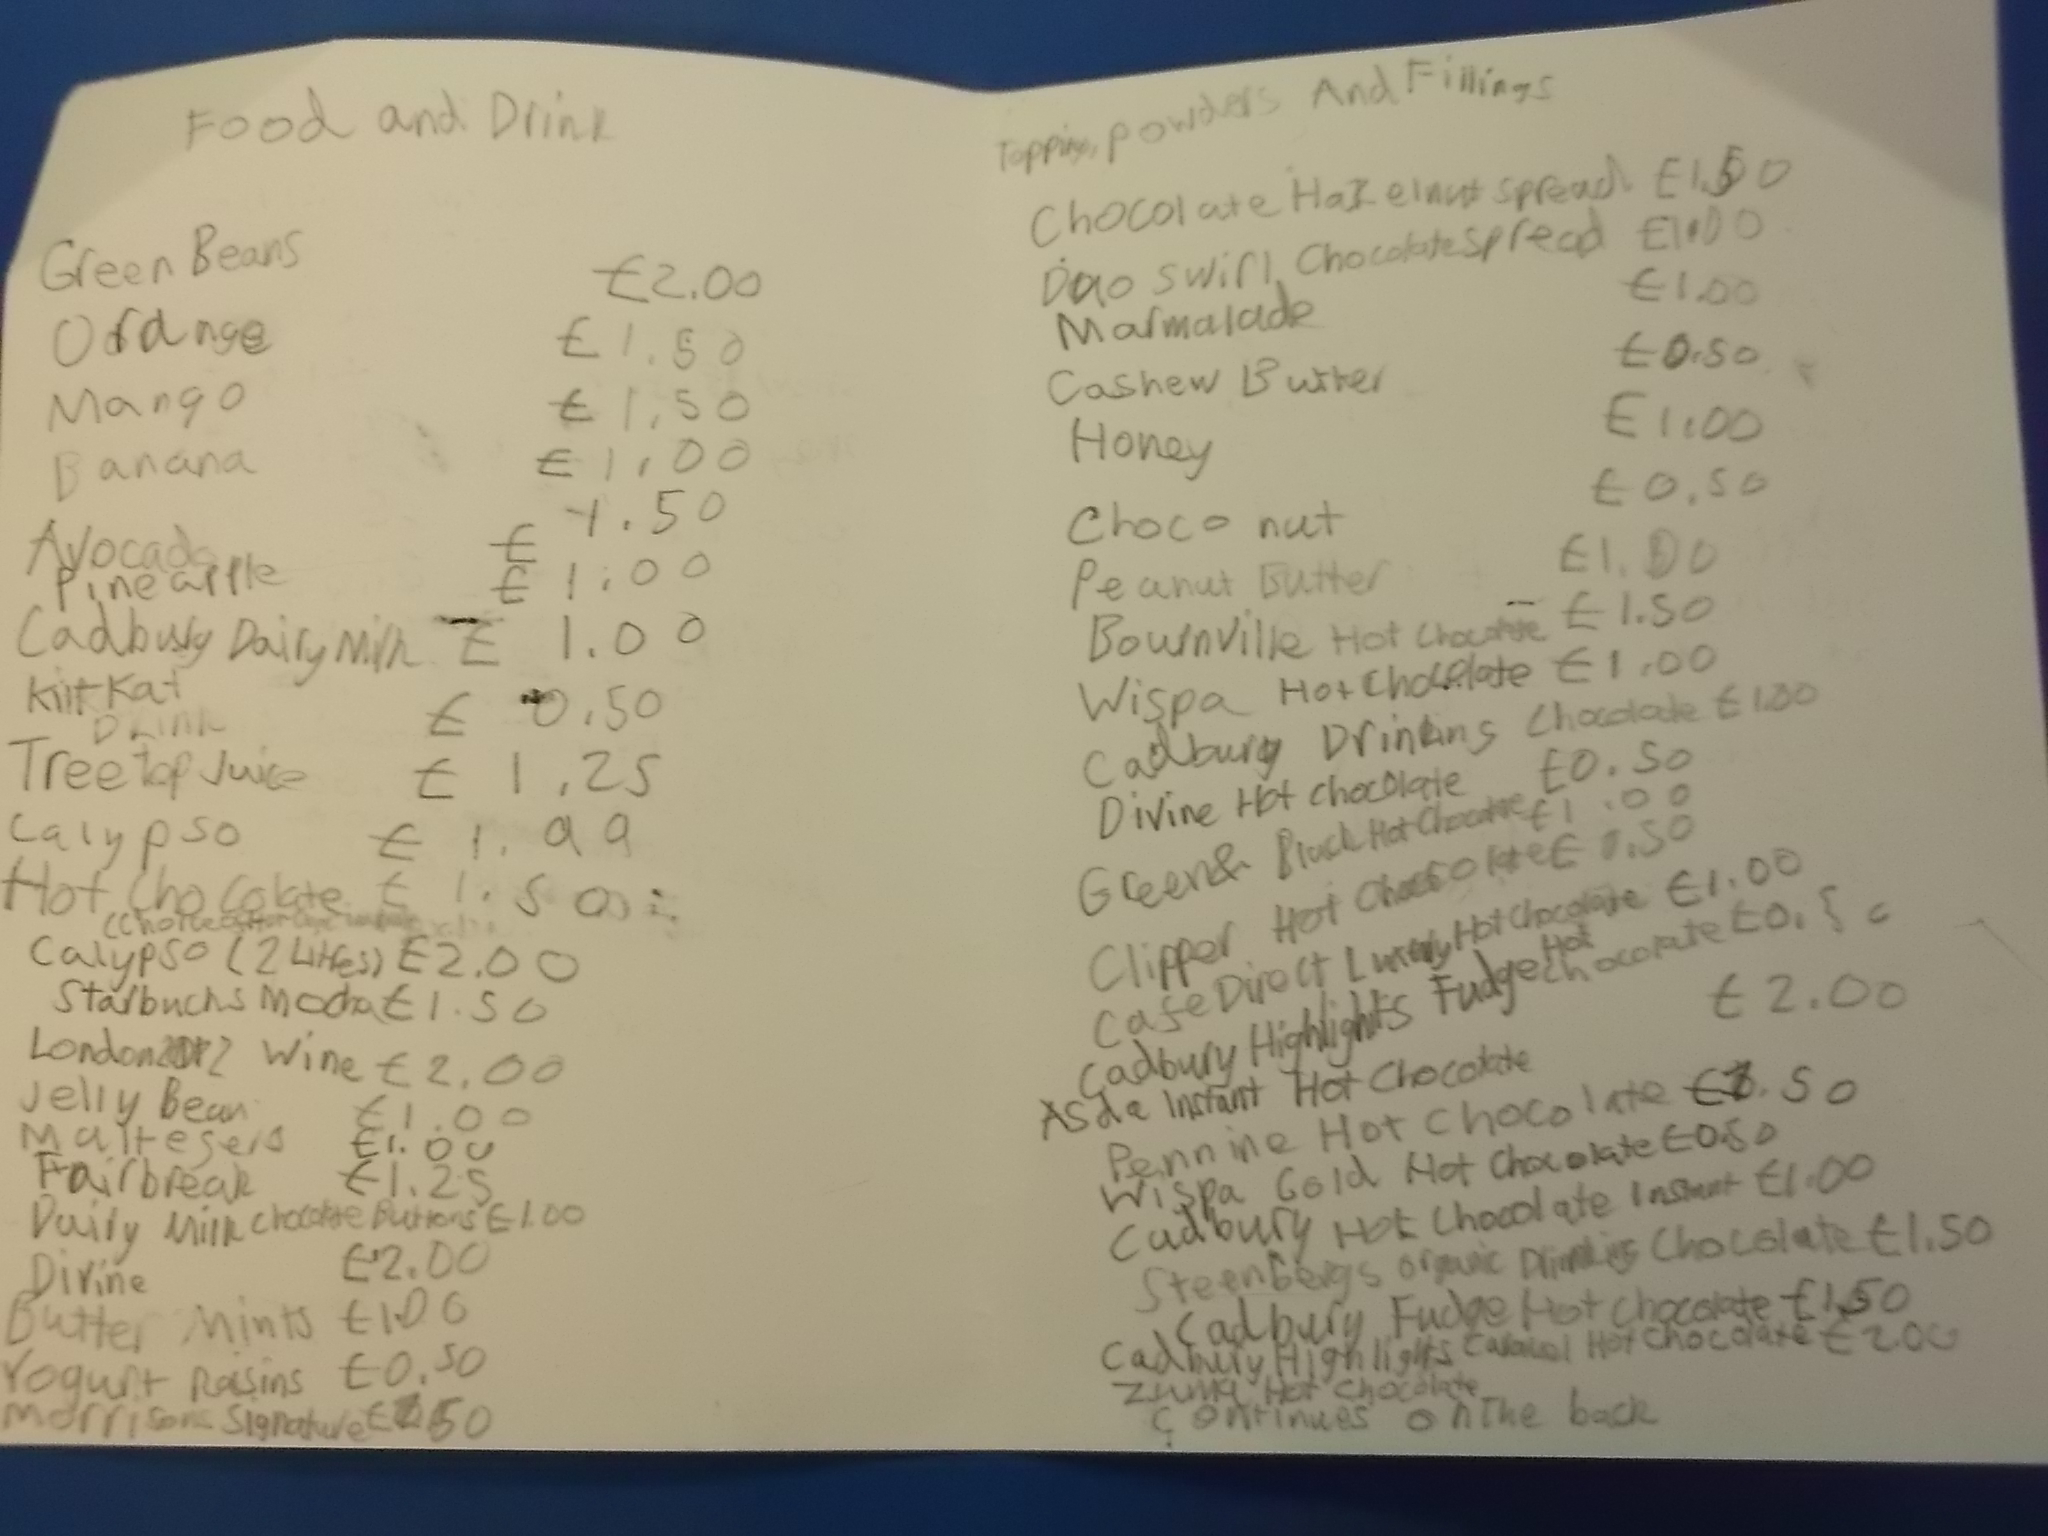 Food and Drink
Green Beans £2.00
Orange £1.50
Mango £1,50
Banana £1.00
Avocado £1.50
Pineapple £1.00
Cadbury Dairy Milk £1.00
KitKat £0.50
Drink
Tree top Juice £1.25
Calypso £1.99
Hot Chocolate £1.50
(Choice of
Calypso (2 Litres) £2.00
Starbucks Mocha £1.50
London 2012 Wine £2.00
Jelly Bean £1.00
Maltesers £1.00
Fairbreak £1.25
Dairy Milk Chocolate Buttons £1.00
Divine £2.00
Butter Mints £1.00
Yogurt Raisins £0.50
Morrisons Signature
Toppings, Powders And Fillings
Chocolate Hazelnut spread £1.50
Duo Swirl Chocolate spread £1.00
Marmalade £1.00
Cashew Butter £0.50
Honey £1.00
Choco nut £0.50
Peanut Butter £1.00
Bournville Hot Chocolate £1.50
Wispa Hot Chocolate £1.00
Cadbury Drinking Chocolate £1.00
Divine Hot chocolate £0.50
Green & Black Hot Chocolate £1.00
Clipper Hot Chocolate £0.50
Cafe Direct Luxury Hot Chocolate £1.00
Cadbury Highlights Fudge Hot Chocolate £0.50
Asda Instant Hot Chocolate £2.00
Pennine Hot Chocolate
Wispa Gold Hot Chocolate £0.50
Cadbury Hot Chocolate Instant £1.00
Steenbergs Organic Drinking Chocolate £1.50
Cadbury Fudge Hot Chocolate £1.50
Cadbury Highlights Caramel Hot Chocolate £2.00
Hot Chocolate
Continues on The back